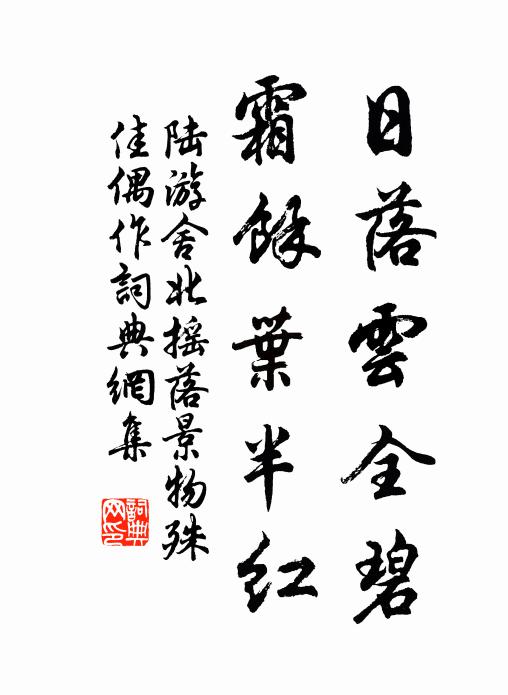 日落雲全碧
霜餘葉半紅
陆游舍北摇落景物殊
佳偶作詞典網集
詞典网印